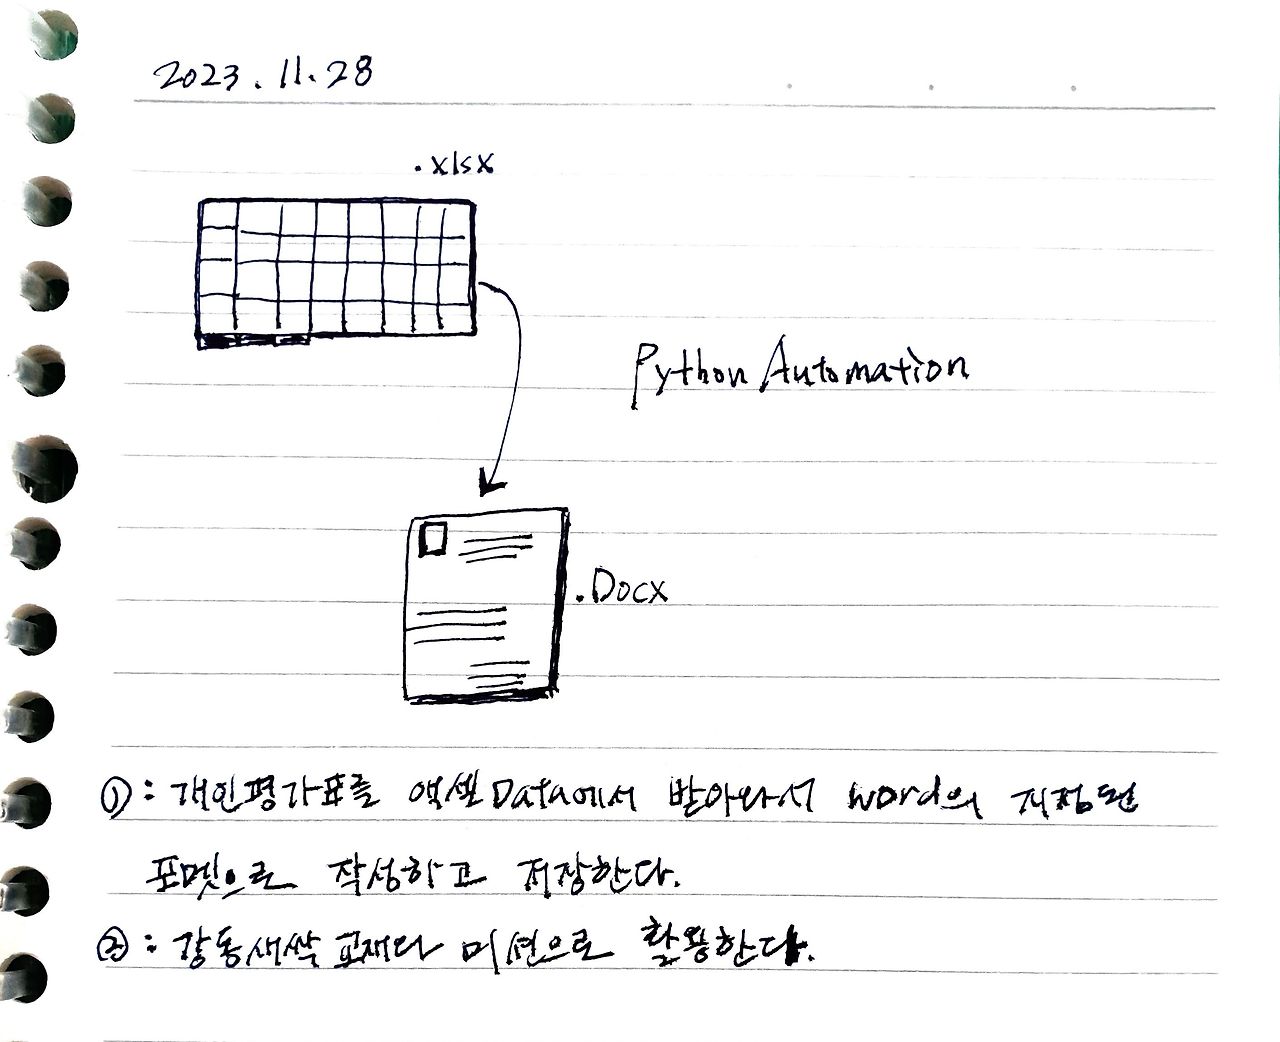 2023.11.28
.xlsx
Python Automation
.Docx
①: 개인평가표를 엑셀Data에서 받아와서 word의 지정된
포멧으로 작성하고 저장한다.
②: 강동새싹 교재와 미션으로 활용한다.